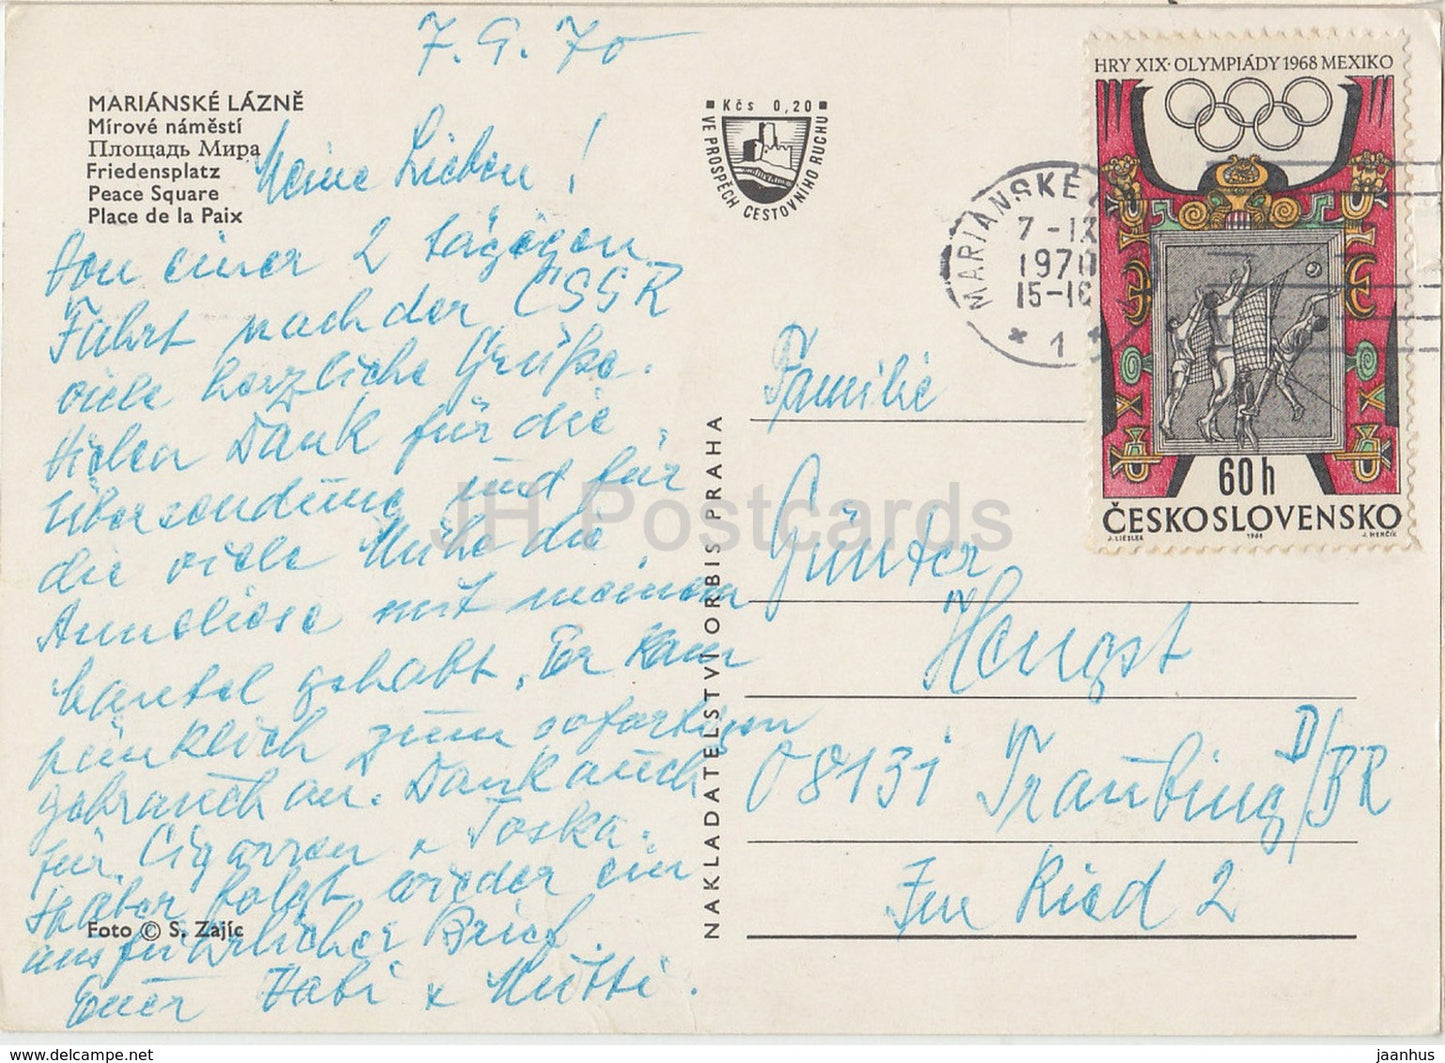 7.9.70
MARIÁNSKÉ LÁZNĚ
Mírové náměstí
Площадь Мира
Friedensplatz
Peace Square
Place de la Paix
Meine Lieben!
Von einer 2 tägigen
Fahrt nach der ČSSR
viele herzliche Grüße.
Vielen Dank für die
Übersendung und für
die viele Mühe die
Anneliese mit meinem
Mantel gehabt. Er kam
pünklich zum sofortigen
gebrauch an. Dank auch
für Cigarren u Toska.
Später folgt wieder ein
ausführlicher Brief.
Euer Vati u Mutti.
Foto © S. Zajíc
Kčs 0,20
VE PROSPĚCH CESTOVNÍHO RUCHU
NAKLADATELSTVÍ ORBIS PRAHA
MARIÁNSKÉ
7-IX
1970
15-16
* 1 *
HRY XIX. OLYMPIÁDY 1968 MEXIKO
60 h
ČESKOSLOVENSKO
J. LIESLER 1968 J. HERČÍK
Familie
Günter
Hengst
08131 Traubing D/BR
Im Ried 2
JH Postcards
www.delcampe.net
jaanhus